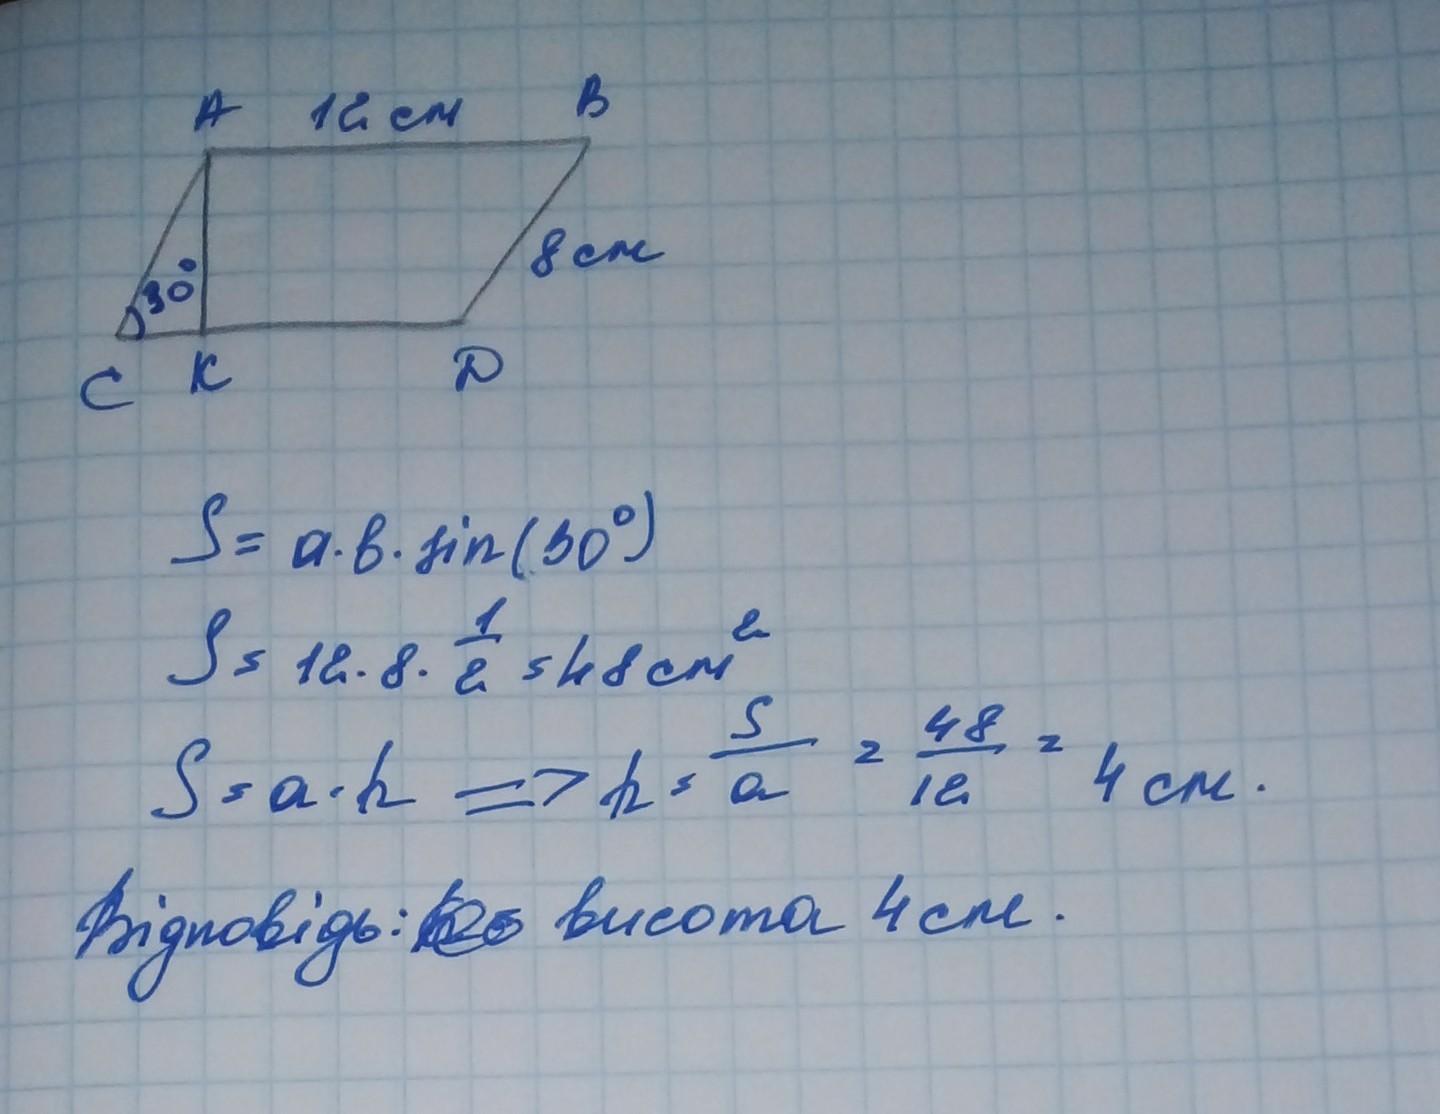 A 12 см B
8 см
30°
C K D
S = a·b·sin(30°)
S = 12·8·1/2 = 48 см²
S = a·h => h = S/a = 48/12 = 4 см.
Відповідь: висота 4 см.